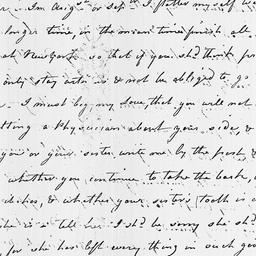 in Augst or Sepr I flatter my self w
longer time, in the mean time furnish all
at New York so that if you shd think pr
only stay
& not be obliged to go
I must beg my Love, that you will not
tting a Physician about your side, &
you or your sister write me by the post &
whether you continue to take the bark, a
dities, & whether your sister's tooth is
she is & tell her I shd be sorry she sh
for she has left every thing in such goo